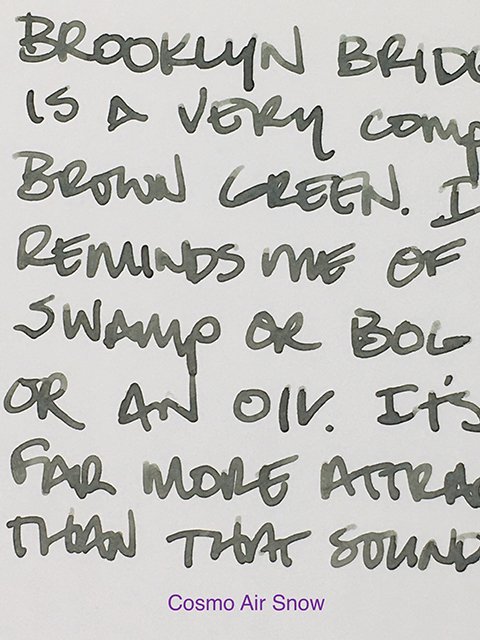 BROOKLYN BRIDG
IS A VERY COMP
BROWN GREEN. I
REMINDS ME OF
SWAMP OR BOG
OR AN OIV. IT'S
FAR MORE ATTRA
THAN THAT SOUND
Cosmo Air Snow